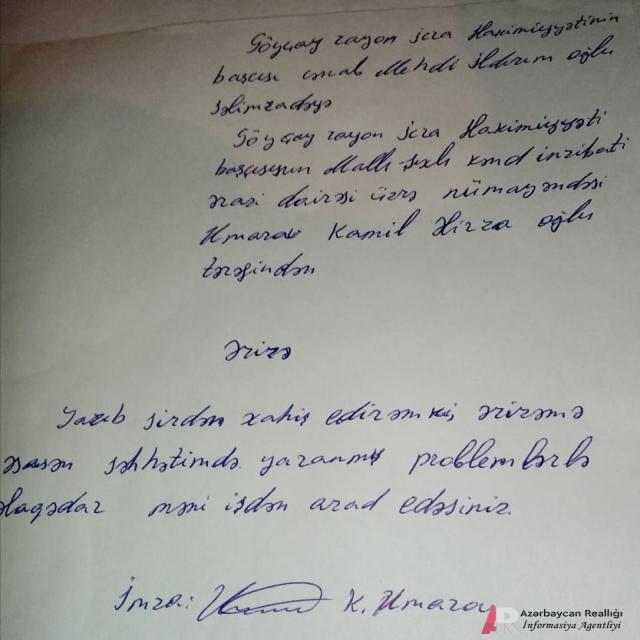 Göyçay rayon icra Hakimiyyətinin
başçısı cənab Mehdi İldırım oğlu
Səlimzadəyə
Göyçay rayon icra Hakimiyyəti
başçısının Mallı-Şıxlı kənd inzibati
ərazi dairəsi üzrə nümayəndəsi
Umarov Kamil Mirzə oğlu
tərəfindən
Ərizə
Yazıb sizdən xahiş edirəm ki, ərizəmə
əsasən səhhətimdə yaranmış problemlərlə
əlaqədar məni işdən azad edəsiniz.
İmza: K. Umarov
Azərbaycan Reallığı
İnformasiya Agentliyi